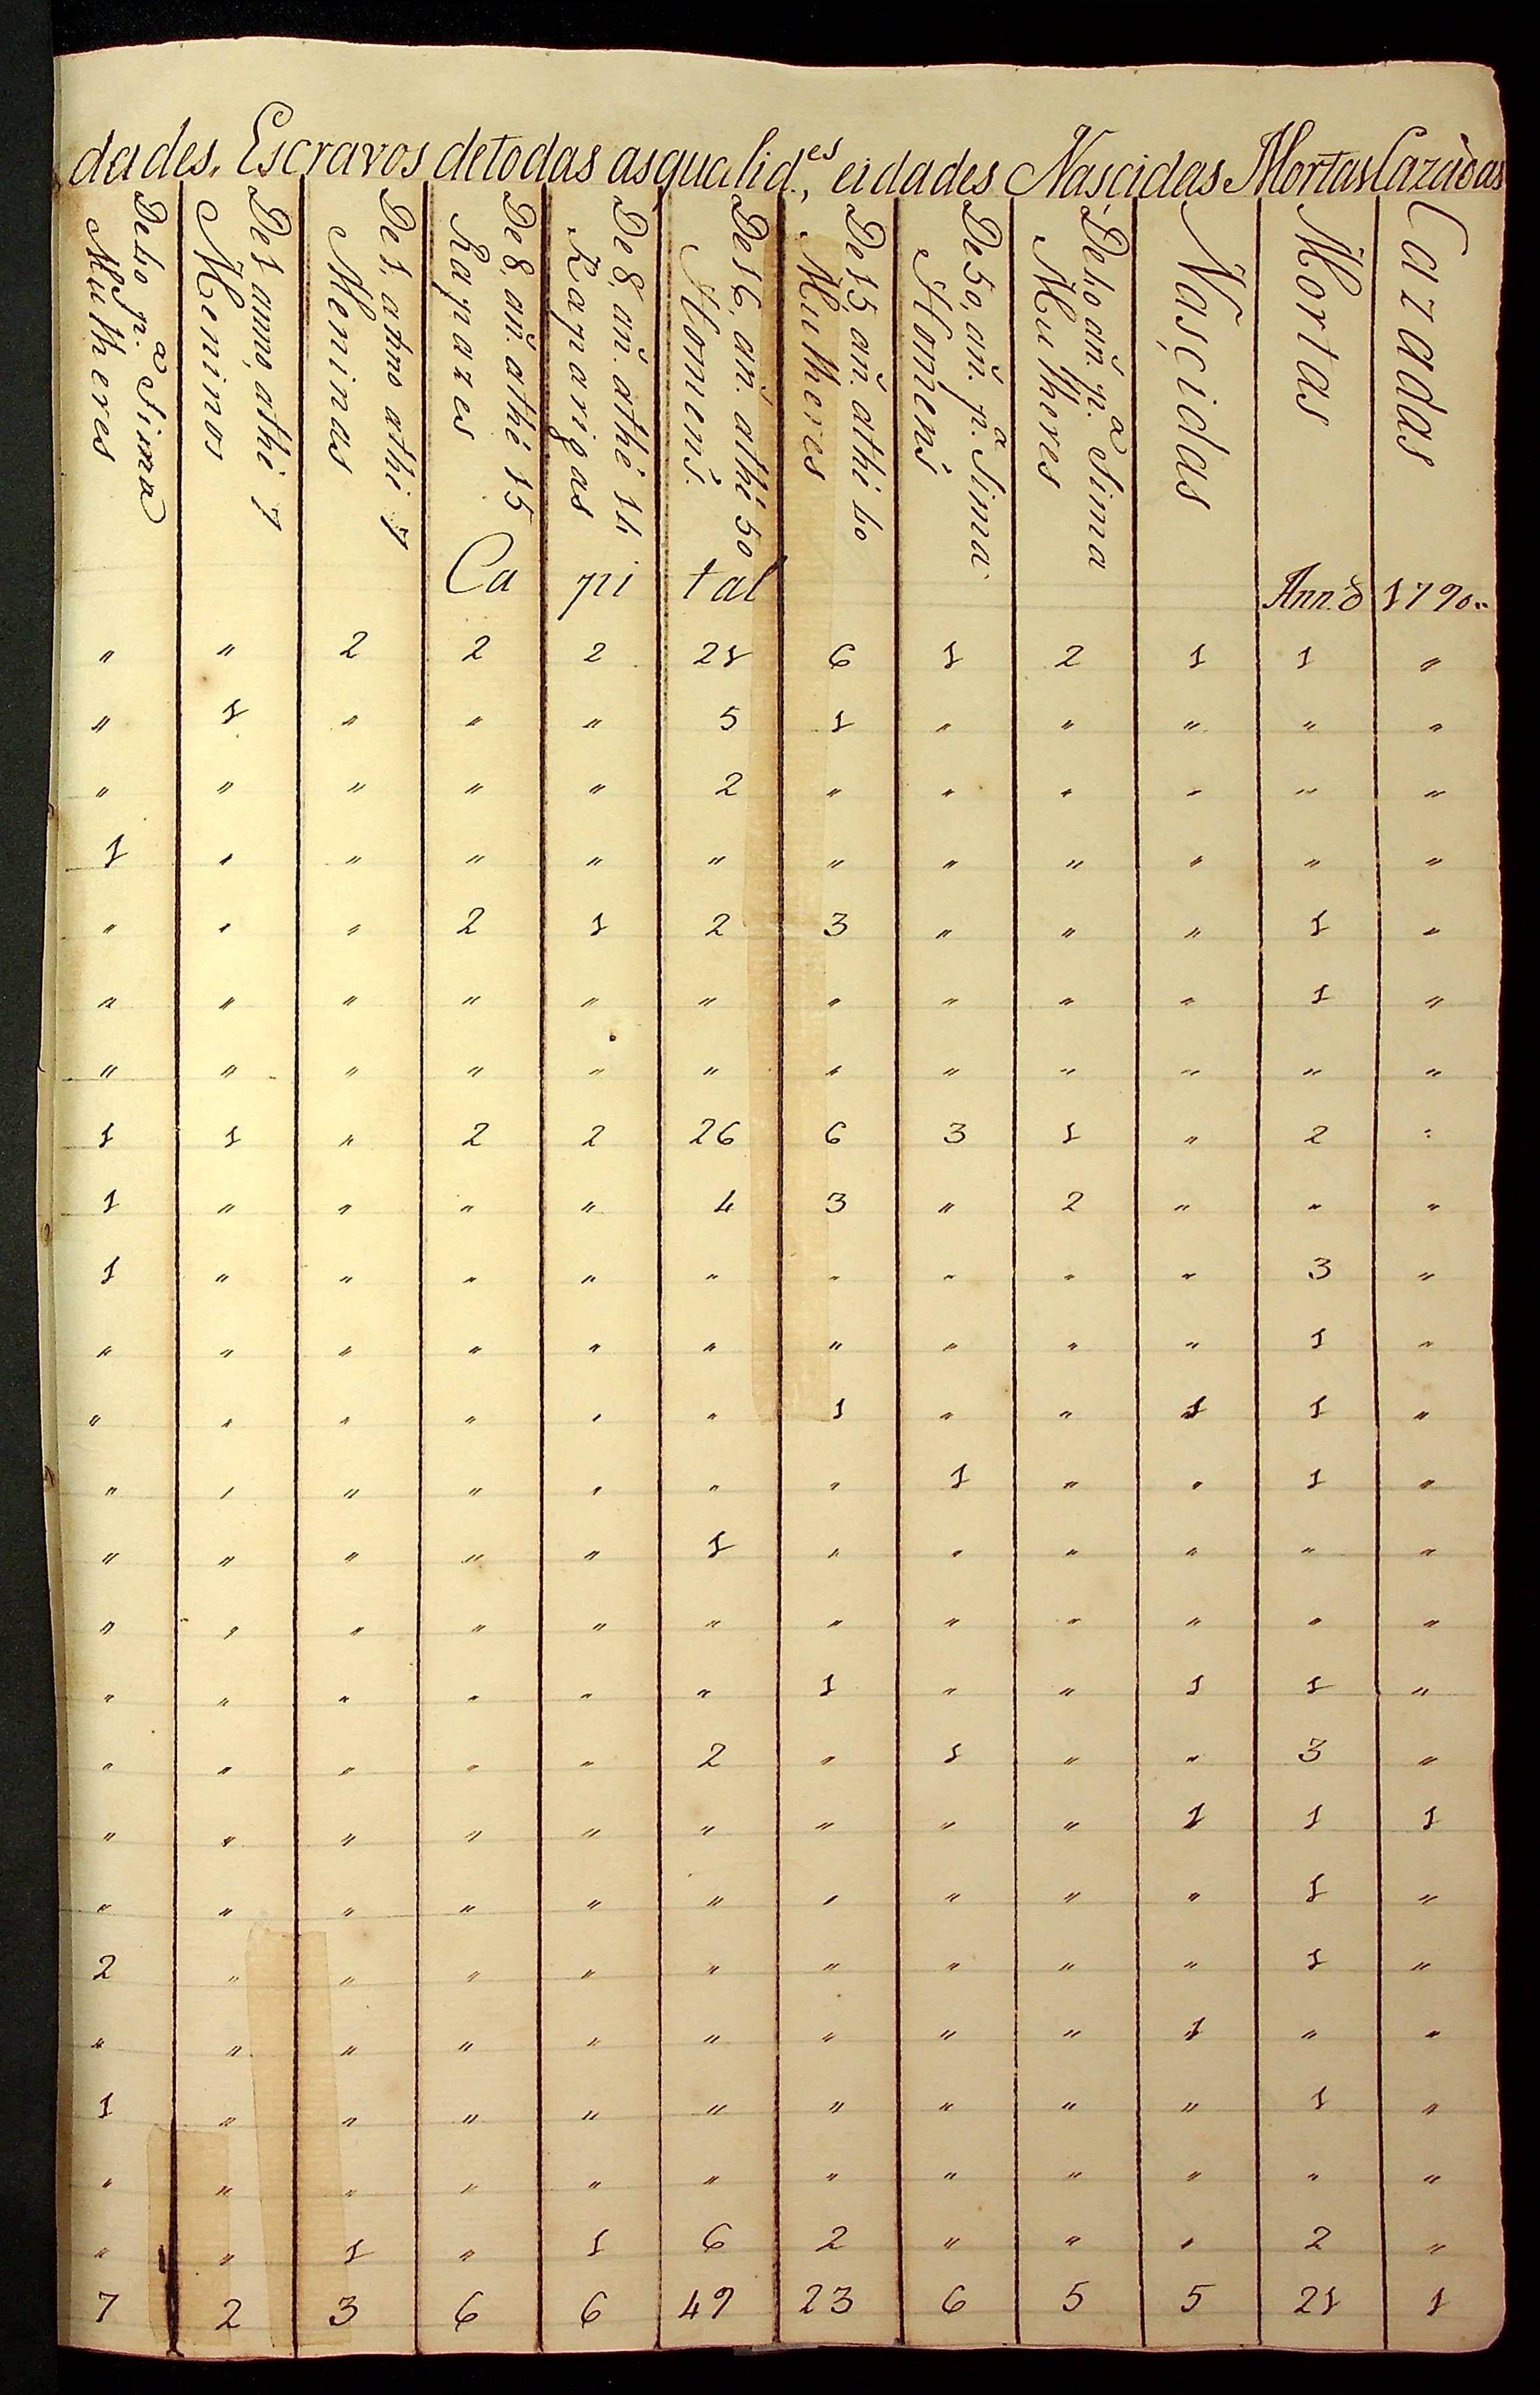 dades. Escravos detodas asqualid.es, eidades Nascidas Mortas Cazadas
De 40 p.a Sima Mulheres
De 1 anno athé 7 Meninos
De 1, anno athé 7 Meninas
De 8, añ. athé 15 Rapazes
De 8, añ. athé 14 Raparigas
De 16, añ. athé 50 Homens.
De 15, añ. athé 40 Mulheres
De 50, añ. p.a Sima Homens
De 40 añ. p.a Sima Mulheres
Nascidas
Mortas
Cazadas
Ca pi tal Ann.o 1790..
" " 2 2 2 21 6 1 2 1 1 "
" 1 " " " 5 1 " " " " "
" " " " " 2 " " " " " "
1 " " " " " " " " " " "
" " " 2 1 2 3 " " " 1 "
" " " " " " " " " " 1 "
" " " " " " " " " " " "
1 1 " 2 2 26 6 3 1 " 2 "
1 " " " " 4 3 " 2 " " "
1 " " " " " " " " " 3 "
" " " " " " " " " " 1 "
" " " " " " 1 " " 1 1 "
" " " " " " " 1 " " 1 "
" " " " " 1 " " " " " "
" " " " " " " " " " " "
" " " " " " 1 " " 1 1 "
" " " " " 2 " 1 " " 3 "
" " " " " " " " " 1 1 1
" " " " " " " " " " 1 "
2 " " " " " " " " " 1 "
" " " " " " " " " 1 " "
1 " " " " " " " " " 1 "
" " " " " " " " " " " "
" " 1 " 1 6 2 " " " 2 "
7 2 3 6 6 49 23 6 5 5 21 1